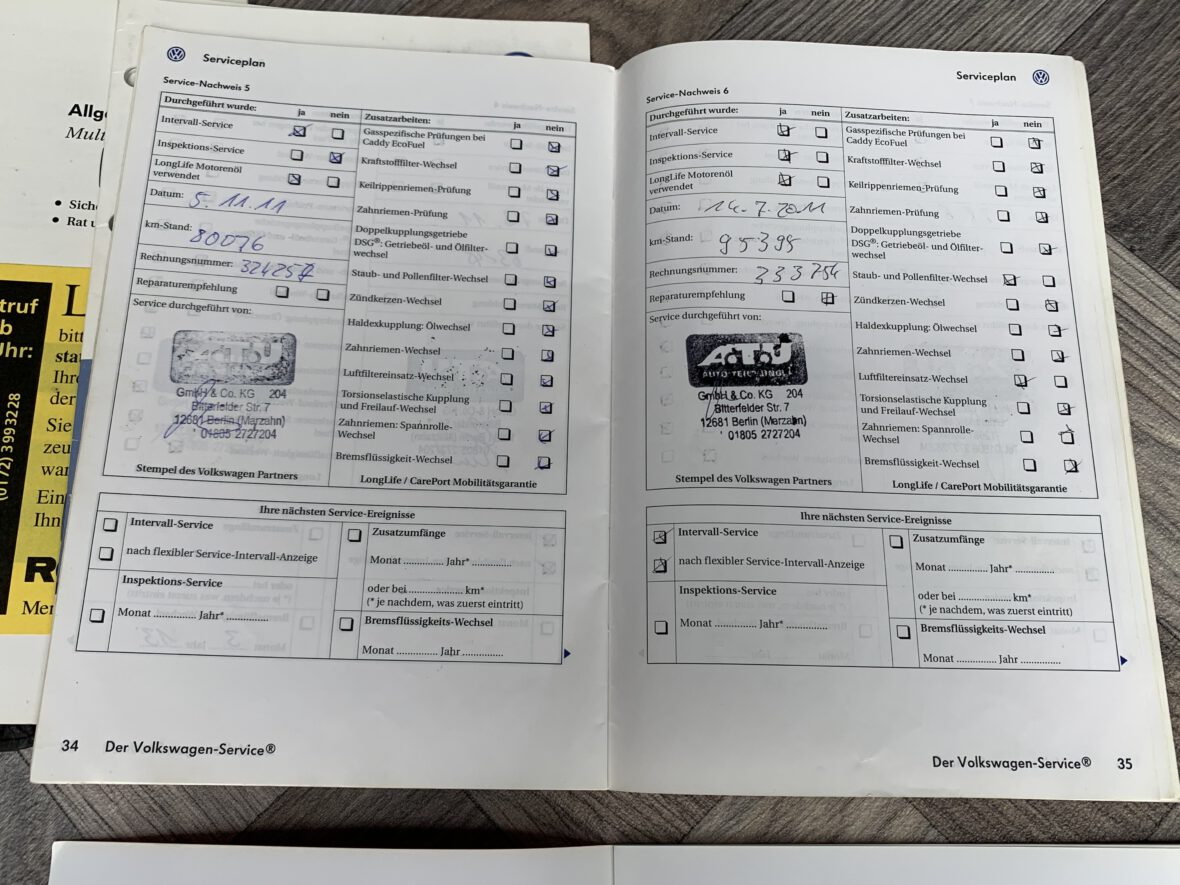 Allg
Mult
• Sich
• Rat u
truf
b
Uhr:
(0172) 3993228
L
bitt
sta
Ihre
der
Sie
zeu
war
Ein
Ihn
R
Mer
Serviceplan
Service-Nachweis 5
Durchgeführt wurde: ja nein
Intervall-Service
Inspektions-Service
LongLife Motorenöl
verwendet
Datum: 5. 11. 11
km-Stand: 80076
Rechnungsnummer: 324257
Reparaturempfehlung
Service durchgeführt von:
A.T.U
GmbH & Co. KG 204
Bitterfelder Str. 7
12681 Berlin (Marzahn)
01805 2727204
Stempel des Volkswagen Partners
Zusatzarbeiten: ja nein
Gasspezifische Prüfungen bei
Caddy EcoFuel
Kraftstofffilter-Wechsel
Keilrippenriemen-Prüfung
Zahnriemen-Prüfung
Doppelkupplungsgetriebe
DSG®: Getriebeöl- und Ölfilter-
wechsel
Staub- und Pollenfilter-Wechsel
Zündkerzen-Wechsel
Haldexkupplung: Ölwechsel
Zahnriemen-Wechsel
Luftfiltereinsatz-Wechsel
Torsionselastische Kupplung
und Freilauf-Wechsel
Zahnriemen: Spannrolle-
Wechsel
Bremsflüssigkeit-Wechsel
LongLife / CarePort Mobilitätsgarantie
Ihre nächsten Service-Ereignisse
Intervall-Service
nach flexibler Service-Intervall-Anzeige
Inspektions-Service
Monat .............. Jahr* ..............
Zusatzumfänge
Monat .............. Jahr* ..............
oder bei .................... km*
(* je nachdem, was zuerst eintritt)
Bremsflüssigkeits-Wechsel
Monat .............. Jahr ..............
34 Der Volkswagen-Service®
Serviceplan
Service-Nachweis 6
Durchgeführt wurde: ja nein
Intervall-Service
Inspektions-Service
LongLife Motorenöl
verwendet
Datum: 14.7.2011
km-Stand: 95395
Rechnungsnummer: 333754
Reparaturempfehlung
Service durchgeführt von:
A.T.U
AUTO TEILE UNGER
GmbH & Co. KG 204
Bitterfelder Str. 7
12681 Berlin (Marzahn)
01805 2727204
Stempel des Volkswagen Partners
Zusatzarbeiten: ja nein
Gasspezifische Prüfungen bei
Caddy EcoFuel
Kraftstofffilter-Wechsel
Keilrippenriemen-Prüfung
Zahnriemen-Prüfung
Doppelkupplungsgetriebe
DSG®: Getriebeöl- und Ölfilter-
wechsel
Staub- und Pollenfilter-Wechsel
Zündkerzen-Wechsel
Haldexkupplung: Ölwechsel
Zahnriemen-Wechsel
Luftfiltereinsatz-Wechsel
Torsionselastische Kupplung
und Freilauf-Wechsel
Zahnriemen: Spannrolle-
Wechsel
Bremsflüssigkeit-Wechsel
LongLife / CarePort Mobilitätsgarantie
Ihre nächsten Service-Ereignisse
Intervall-Service
nach flexibler Service-Intervall-Anzeige
Inspektions-Service
Monat .............. Jahr* ..............
Zusatzumfänge
Monat .............. Jahr* ..............
oder bei .................... km*
(* je nachdem, was zuerst eintritt)
Bremsflüssigkeits-Wechsel
Monat .............. Jahr ..............
Der Volkswagen-Service® 35